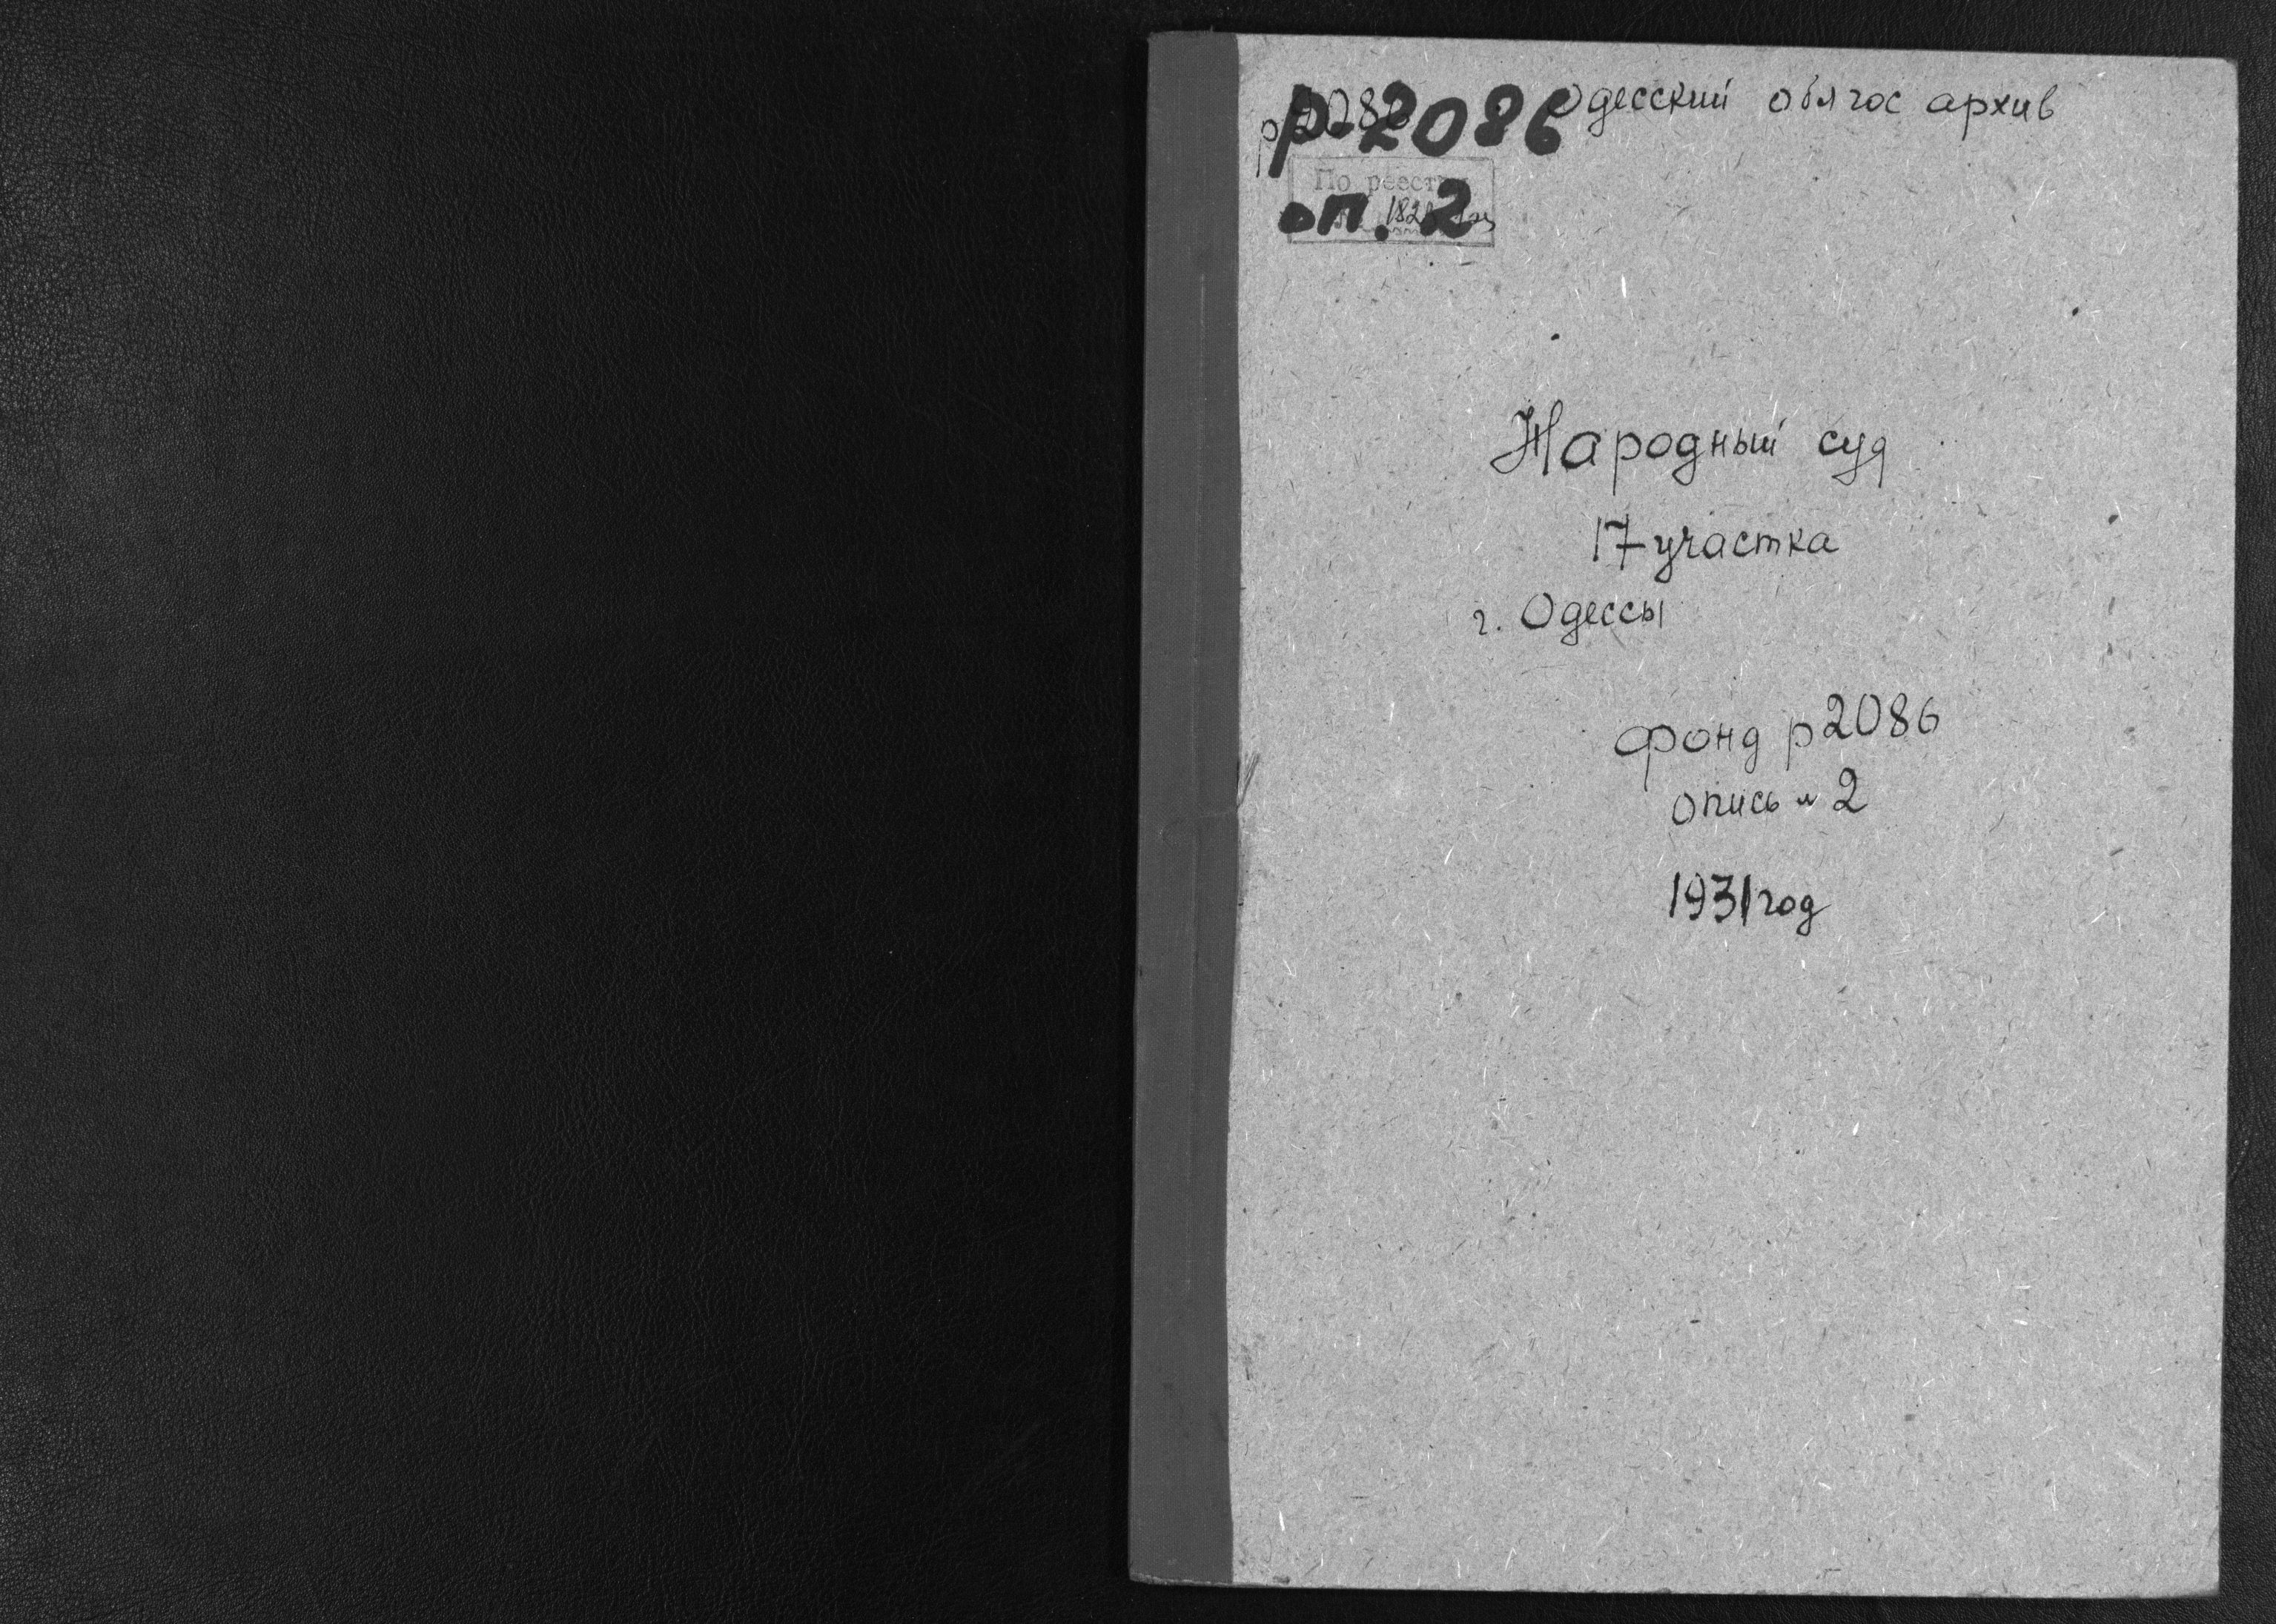 Одесский обл гос архив
р-2086
По реестру
оп. 2
Народный суд
17 участка
г. Одессы
фонд р2086
опись № 2
1931 год